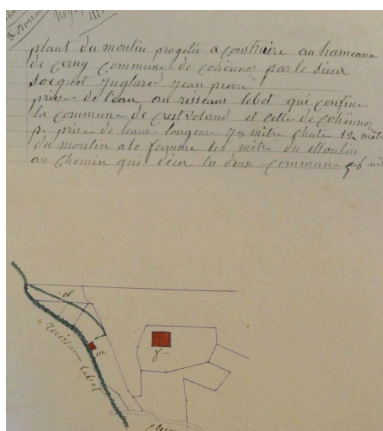 plant du moulin progetés a construire au hameaux
de cerny commune de cohënnoz par le sieur
Socquet Juglard Jean pierre
prises de leau au risseaux lebot qui confine
la commune de crestvoland et celle de cohënnoz
p. prises de leaux longeur 78 mètre chutes 12 mètre
du moulin a la ferme 115 mètres du Moulin
au chemin qui décer la deux commune
m
ruissaux lebot